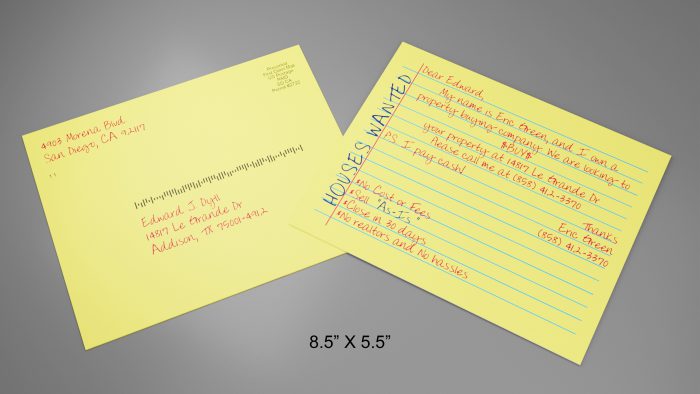 4903 Morena Blvd.
San Diego, CA 92117
First Class Mail
US Postage
PAID
Edward J Dyll
14817 Le Grande Dr
Addison, TX 75001-4912
HOUSES WANTED
Dear Edward,
My name is Eric Green, and I own a
property buying company. We are looking to
$BUY$
your property at 14817 Le Grande Dr
Please call me at (858) 412-3370
P.S. I pay cash!
Thanks
Eric Green
(858) 412-3370
*No Cost or Fees
*Sell "As-Is"
*Close in 30 days
*No realtors and No hassles
8.5” X 5.5”